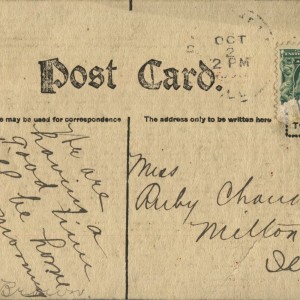 OCT
2
2 PM
Post Card.
e may be used for correspondence
The address only to be written here
We are
having a
good time
be home
morning
Miss
Ruby Chand
Milton